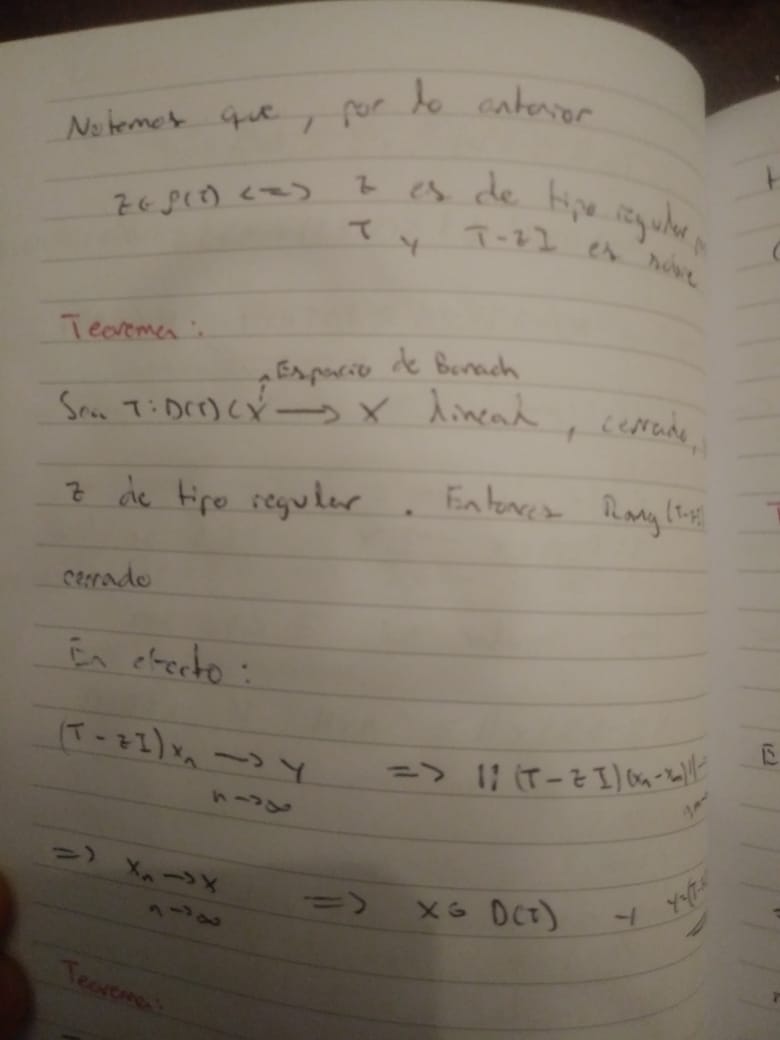 Notemos que, por lo anterior
z ∈ ρ(T) <=> z es de tipo regular
T y T-zI es sobre
Teorema:
Espacio de Banach
Sea T: D(T) ⊂ X → X lineal, cerrado,
z de tipo regular. Entonces Rang(T-zI)
cerrado
En efecto:
(T-zI)xₙ → y => ||(T-zI)(xₙ-xₘ)||
n→∞
=> xₙ → x => x ∈ D(T) y y=(T-
n→∞
Teorema: